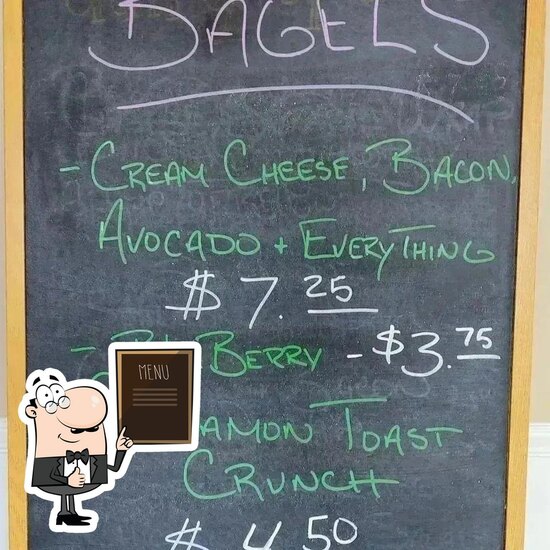 BAGELS
- CREAM CHEESE, BACON,
AVOCADO + EVERYTHING
$7.25
BERRY - $3.75
MENU
TOAST
CRUNCH
$4.50